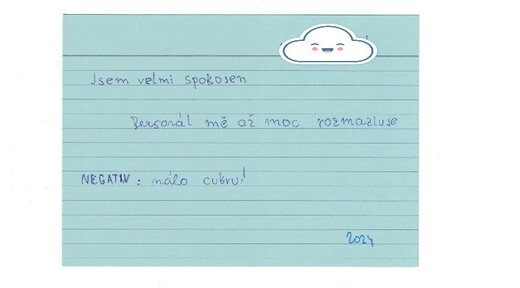 Jsem velmi spokosen
Personál mě až moc rozmazluse
NEGATIV: málo cukru!
2024